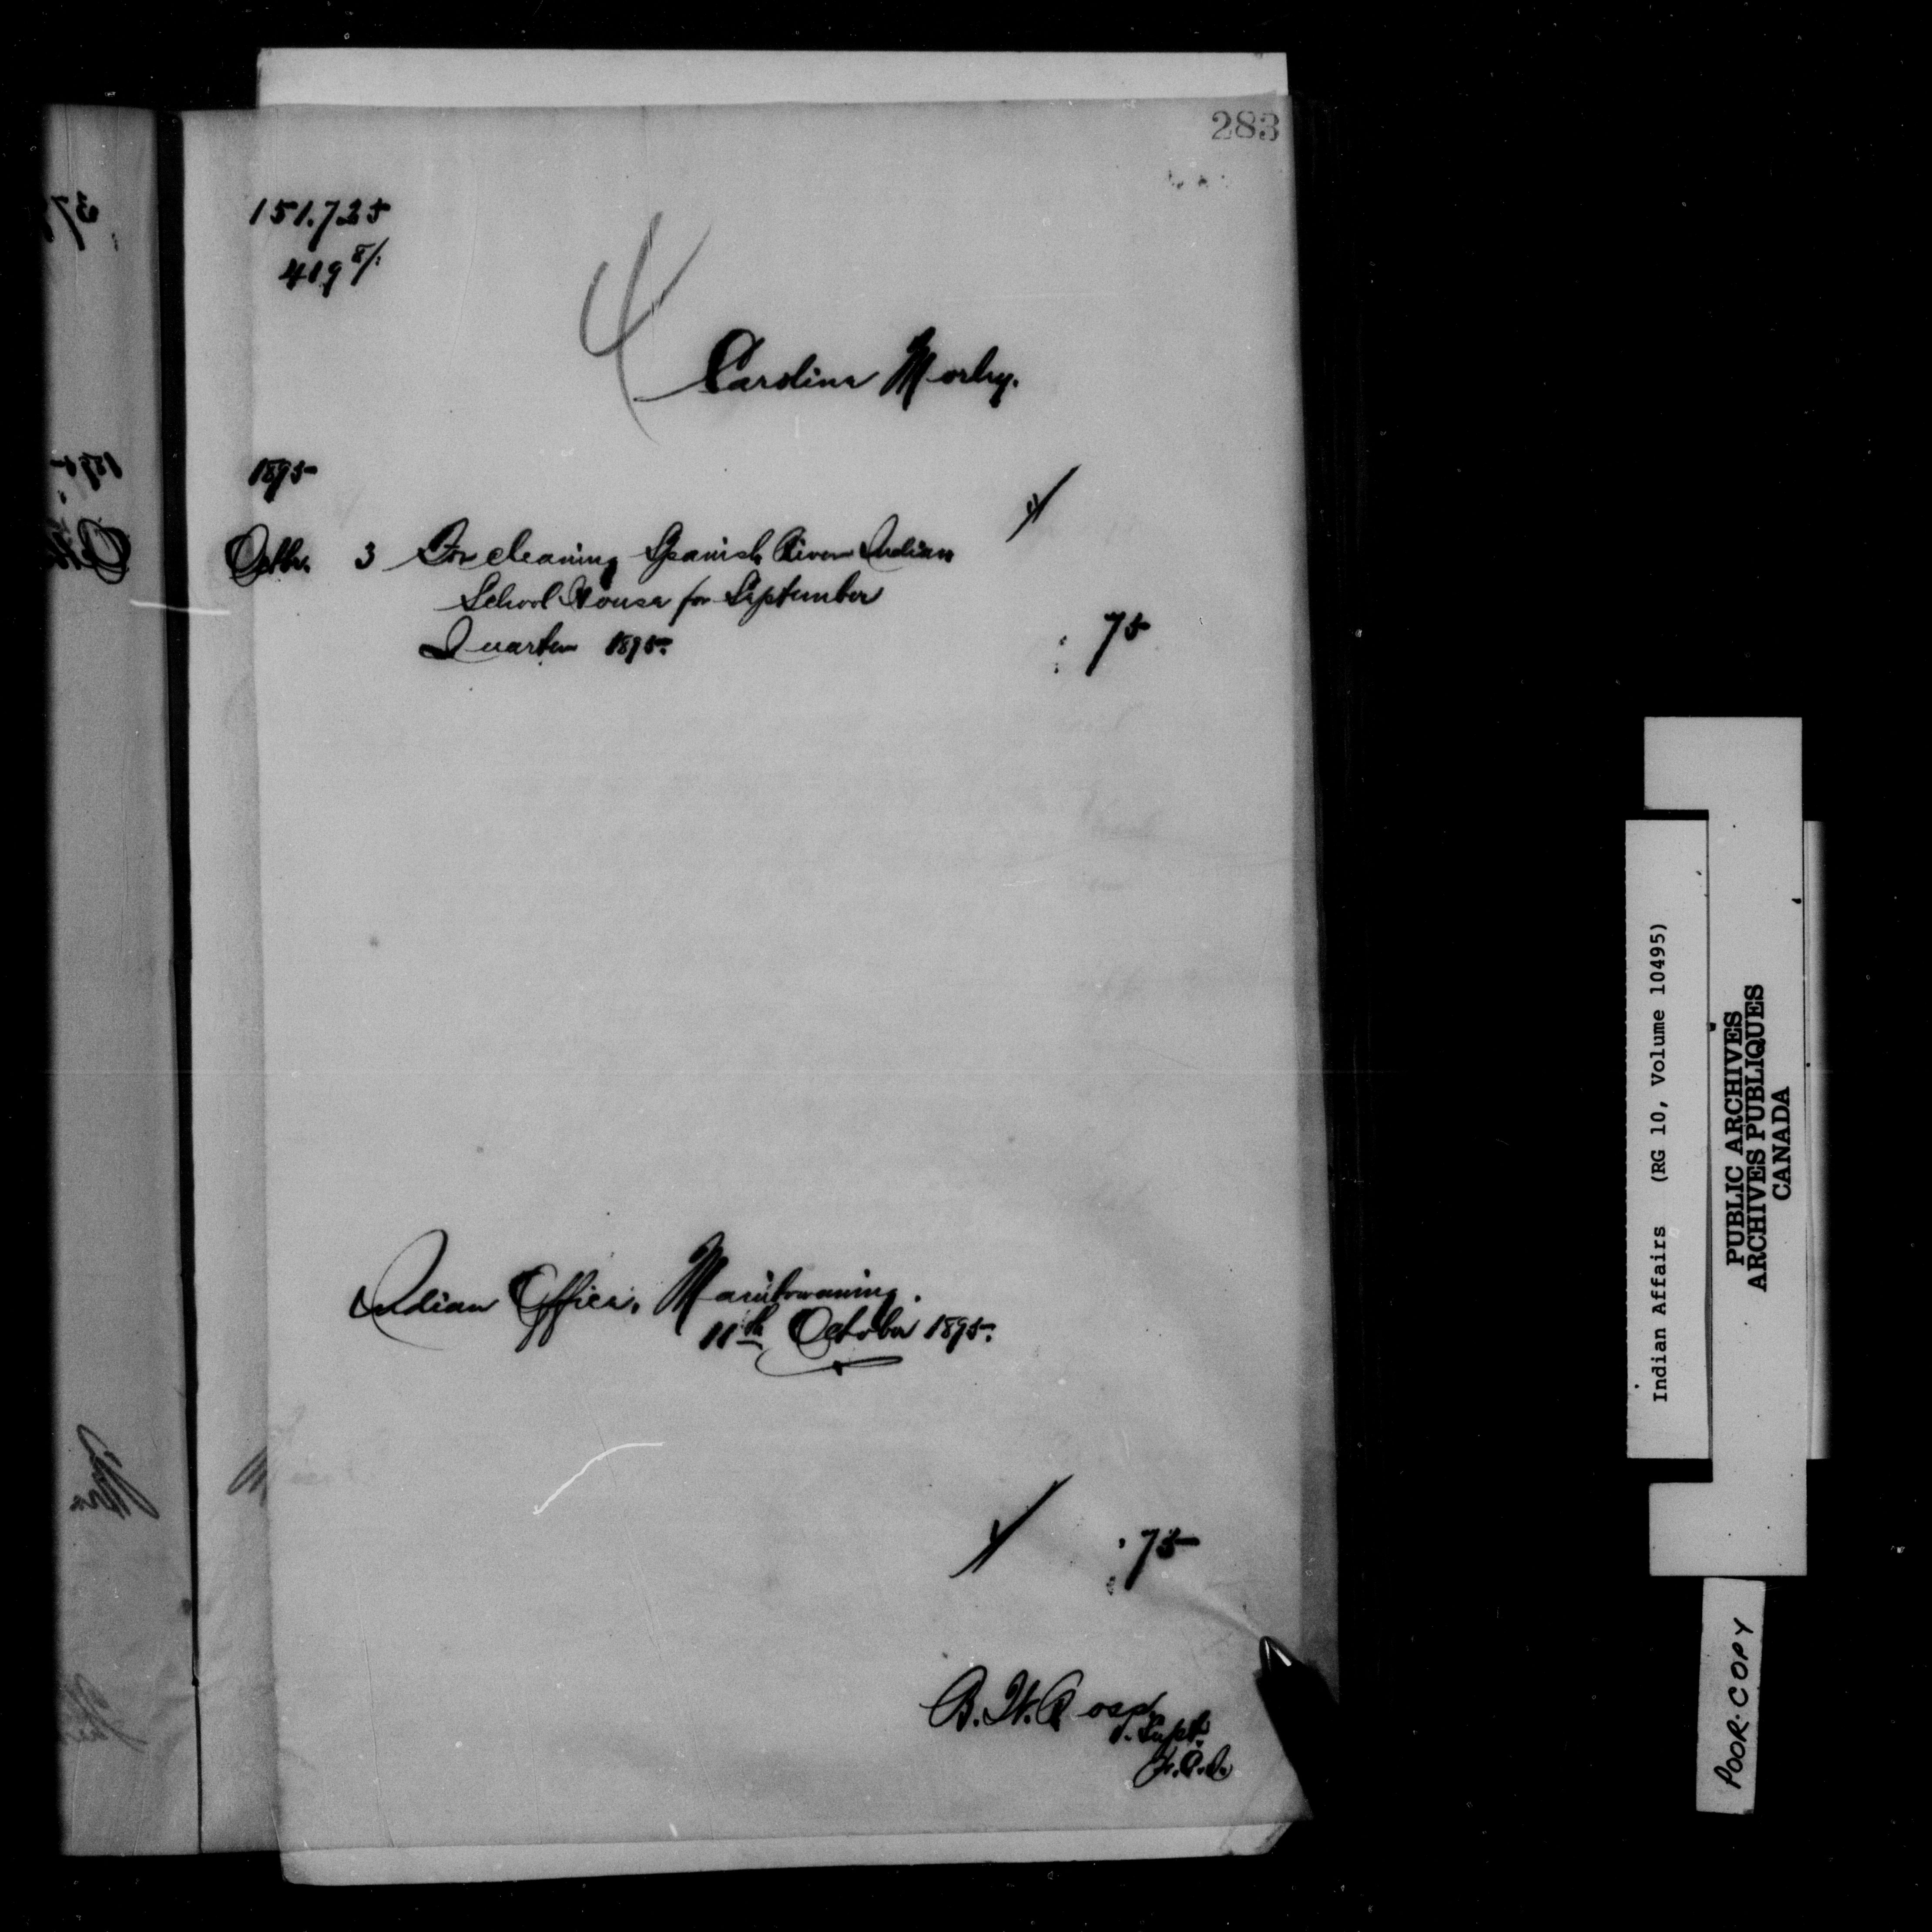 283
151.725
419 8/:
4
Caroline Morley.
1895
Octbr. 3 For cleaning Spanish River Indian
School House for September
Quarter 1895. 75
Indian Office, Manitowaning.
11th October 1895.
75
B. W. Ross
Supt.
Indian Affairs (RG 10, Volume 10495)
PUBLIC ARCHIVES
ARCHIVES PUBLIQUES
CANADA
POOR COPY